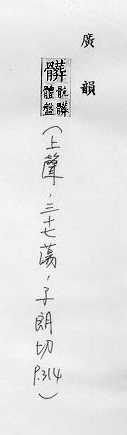 廣韻
髒
骯髒
體盤
(上聲,三十七蕩,子朗切 P.314)